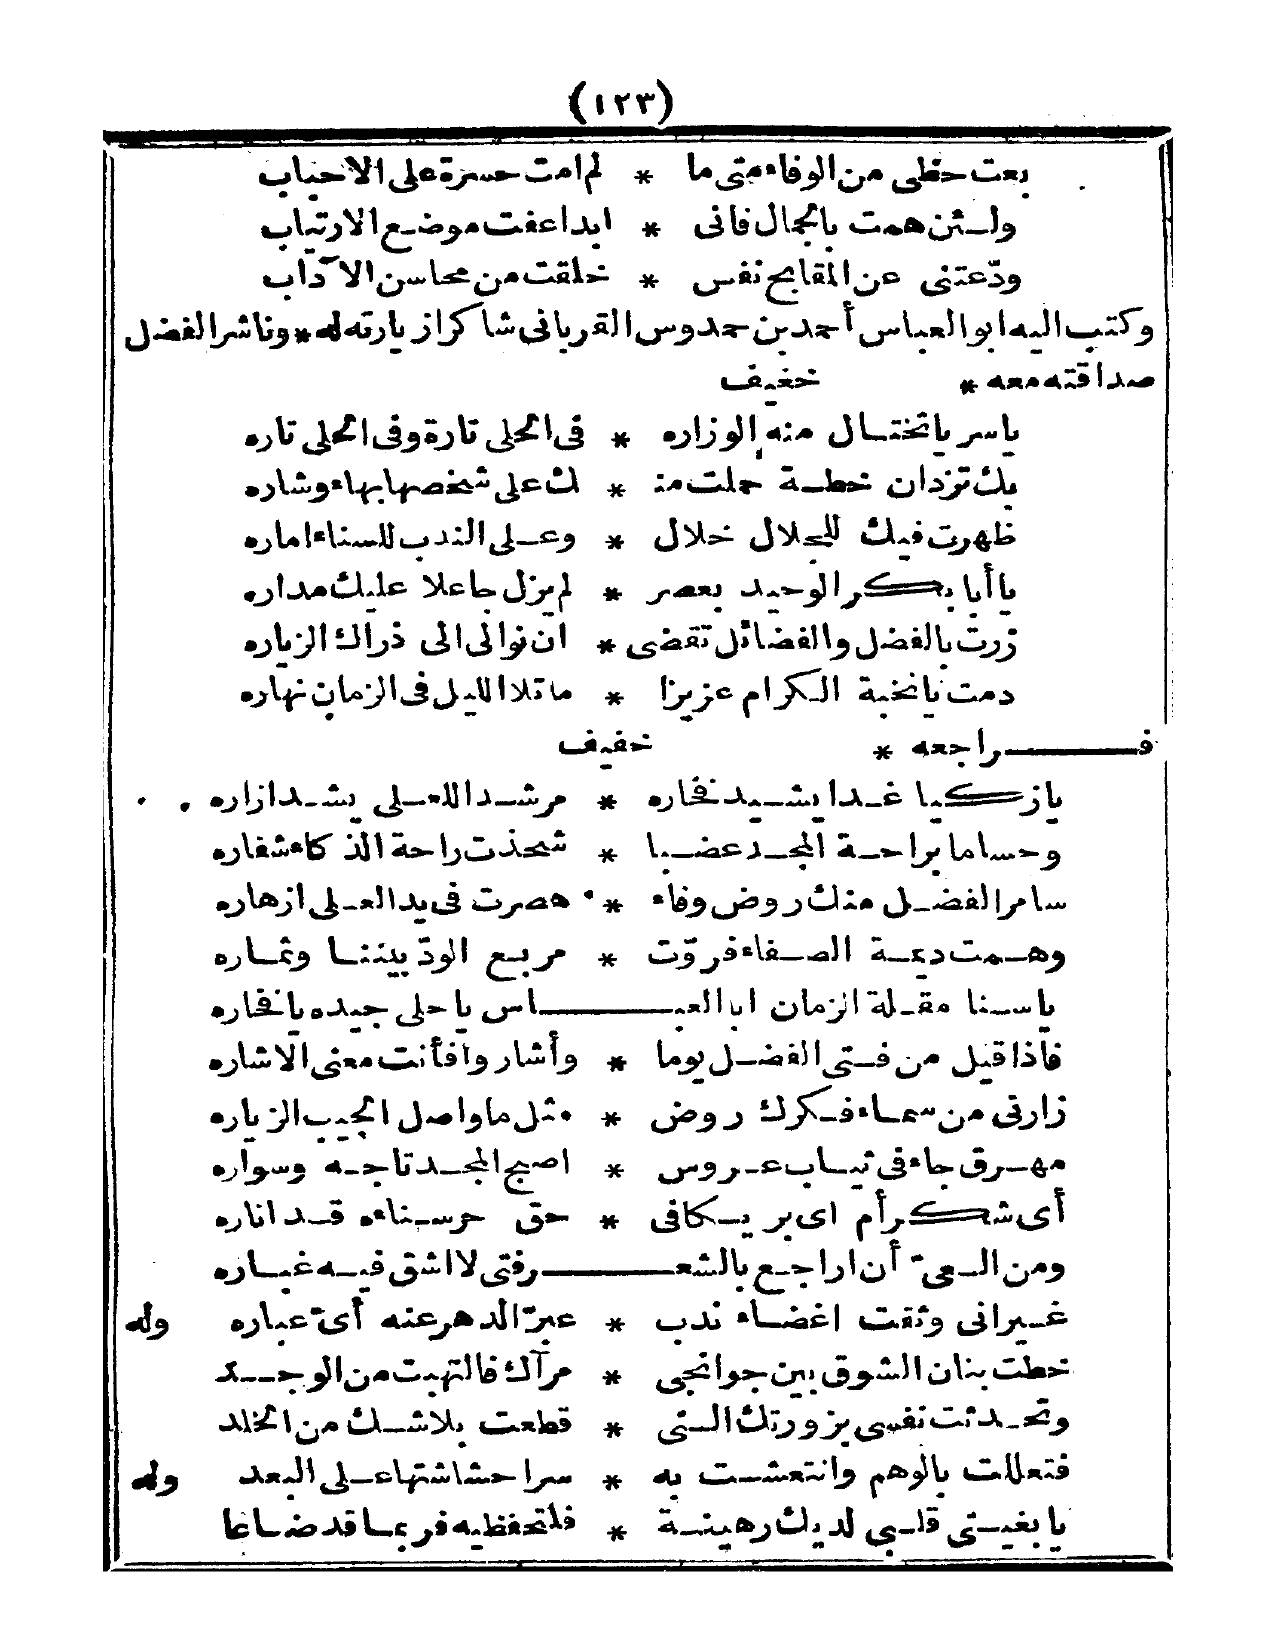 (١٢٣)
بعت حظى من الوفاء متى ما * لم امت حسرة على الاحباب
ولئن همت بالجمال فانى * ابدا عفت موضع الارتياب
ودّعتنى عن المقابح نفس * خلقت من محاسن الآداب
وكتب اليه ابو العباس أحمد بن حمدوس القربانى شاكرا زيارته له * وناشر الفضل
صداقته معه * خفيف
ياسريا تختال منه الوزاره * فى الحلى تارة وفى الحلى تاره
بك تزدان خطة جملت منـ * ـك على شخصها بهاء وشاره
ظهرت فيك للجلال خلال * وعلى الندب للسناء اماره
يا أبا بكر الوحيد بعصر * لم يزل جاعلا عليك مداره
زرت بالفضل والفضائل تقضى * ان نوالى الى ذراك الزياره
دمت يا نخبة الكرام عزيزا * ما تلا الليل فى الزمان نهاره
فراجعه * خفيف
يا زكيا غدا يشيد نفاره * مر شد اللعلى يشد ازاره
وحساما براحة المجد عضبا * شحذت راحة الذكاء شفاره
سامر الفضل منك روض وفاء * هصرت فى يد العلى ازهاره
وهمت ديمة الصفاء فروّت * مربع الودّ بيننا وثماره
يا سنا مقلة الزمان ابا العبـاس يا حلى جيده يا نخاره
فاذا قيل من فتى الفضل يوما * وأشاروا فأنت معنى الاشاره
زارنى من سماء فكرك روض * مثل ما واصل الحبيب الزياره
مهرق جاء فى ثياب عروس * اصبح المجد تاجه وسواره
أى شكر أم اى بر يكافى * حق حرسناءه قد اناره
ومن العىّ أن اراجع بالشعـر فتى لا اشق فيه غباره
غير انى وثقت اغضاء ندب * عبرّ الدهر عنه أىّ عباره وله
خطت بنان الشوق بين جوانحى * مرآك فالتهبت من الوجد
وتحدثت نفسى بزورتك التى * قطعت بلا شك من الخلد
فتعللت بالوهم وانتعشت به * سرا حشا شتها على البعد وله
يا بغيتى قلبى لديك رهينة * فلتحفظيه فربما قد ضاعا